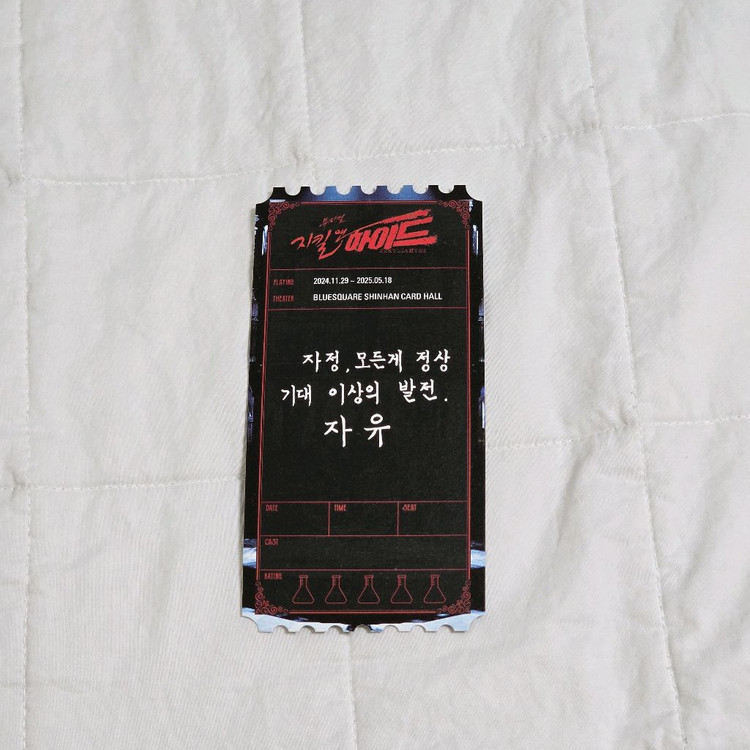 뮤지컬
지킬 앤 하이드
PLAYING 2024.11.29 ~ 2025.05.18
THEATER BLUESQUARE SHINHAN CARD HALL
자정, 모든게 정상
기대 이상의 발전.
자유
DATE TIME SEAT
CAST
RATING